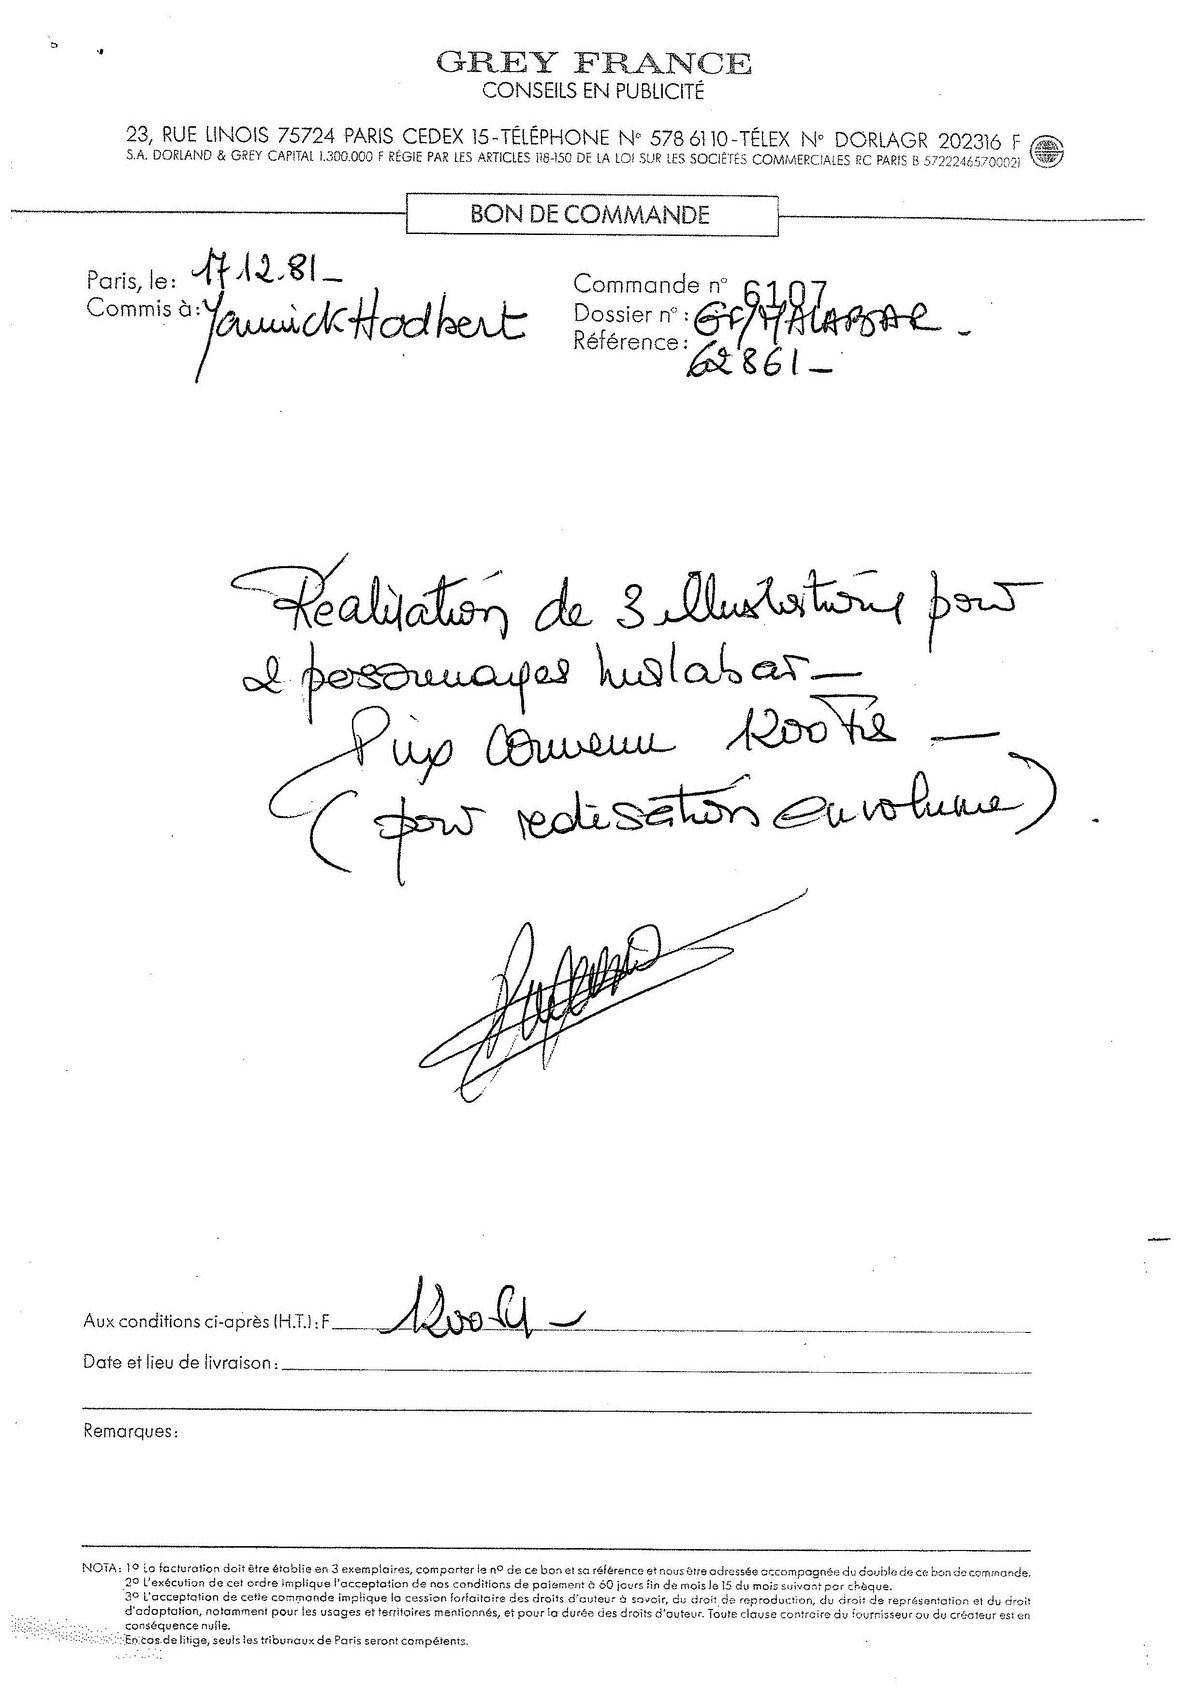 GREY FRANCE
CONSEILS EN PUBLICITÉ
23, RUE LINOIS 75724 PARIS CEDEX 15-TÉLÉPHONE N° 578 61 10-TÉLEX N° DORLAGR 202316 F
S.A. DORLAND & GREY CAPITAL 1.300.000 F RÉGIE PAR LES ARTICLES 118-150 DE LA LOI SUR LES SOCIÉTÉS COMMERCIALES RC PARIS B 57222465700021
BON DE COMMANDE
Paris, le: 17.12.81_
Commis à: Yannick Hodbert
Commande n° 6107
Dossier n°: GF/MALABAR _
Référence: 62861_
Réalisation de 3 illustrations pour
2 personnages malabar_
Prix convenu 1200 Frs _
(pour réalisation en volume).
Aux conditions ci-après (H.T.): F 1200
Date et lieu de livraison:
Remarques:
NOTA: 1° La facturation doit être établie en 3 exemplaires, comporter le n° de ce bon et sa référence et nous être adressée accompagnée du double de ce bon de commande.
2° L'exécution de cet ordre implique l'acceptation de nos conditions de paiement à 60 jours fin de mois le 15 du mois suivant par chèque.
3° L'acceptation de cette commande implique la cession forfaitaire des droits d'auteur à savoir, du droit de reproduction, du droit de représentation et du droit
d'adaptation, notamment pour les usages et territoires mentionnés, et pour la durée des droits d'auteur. Toute clause contraire du fournisseur ou du créateur est en
conséquence nulle.
En cas de litige, seuls les tribunaux de Paris seront compétents.